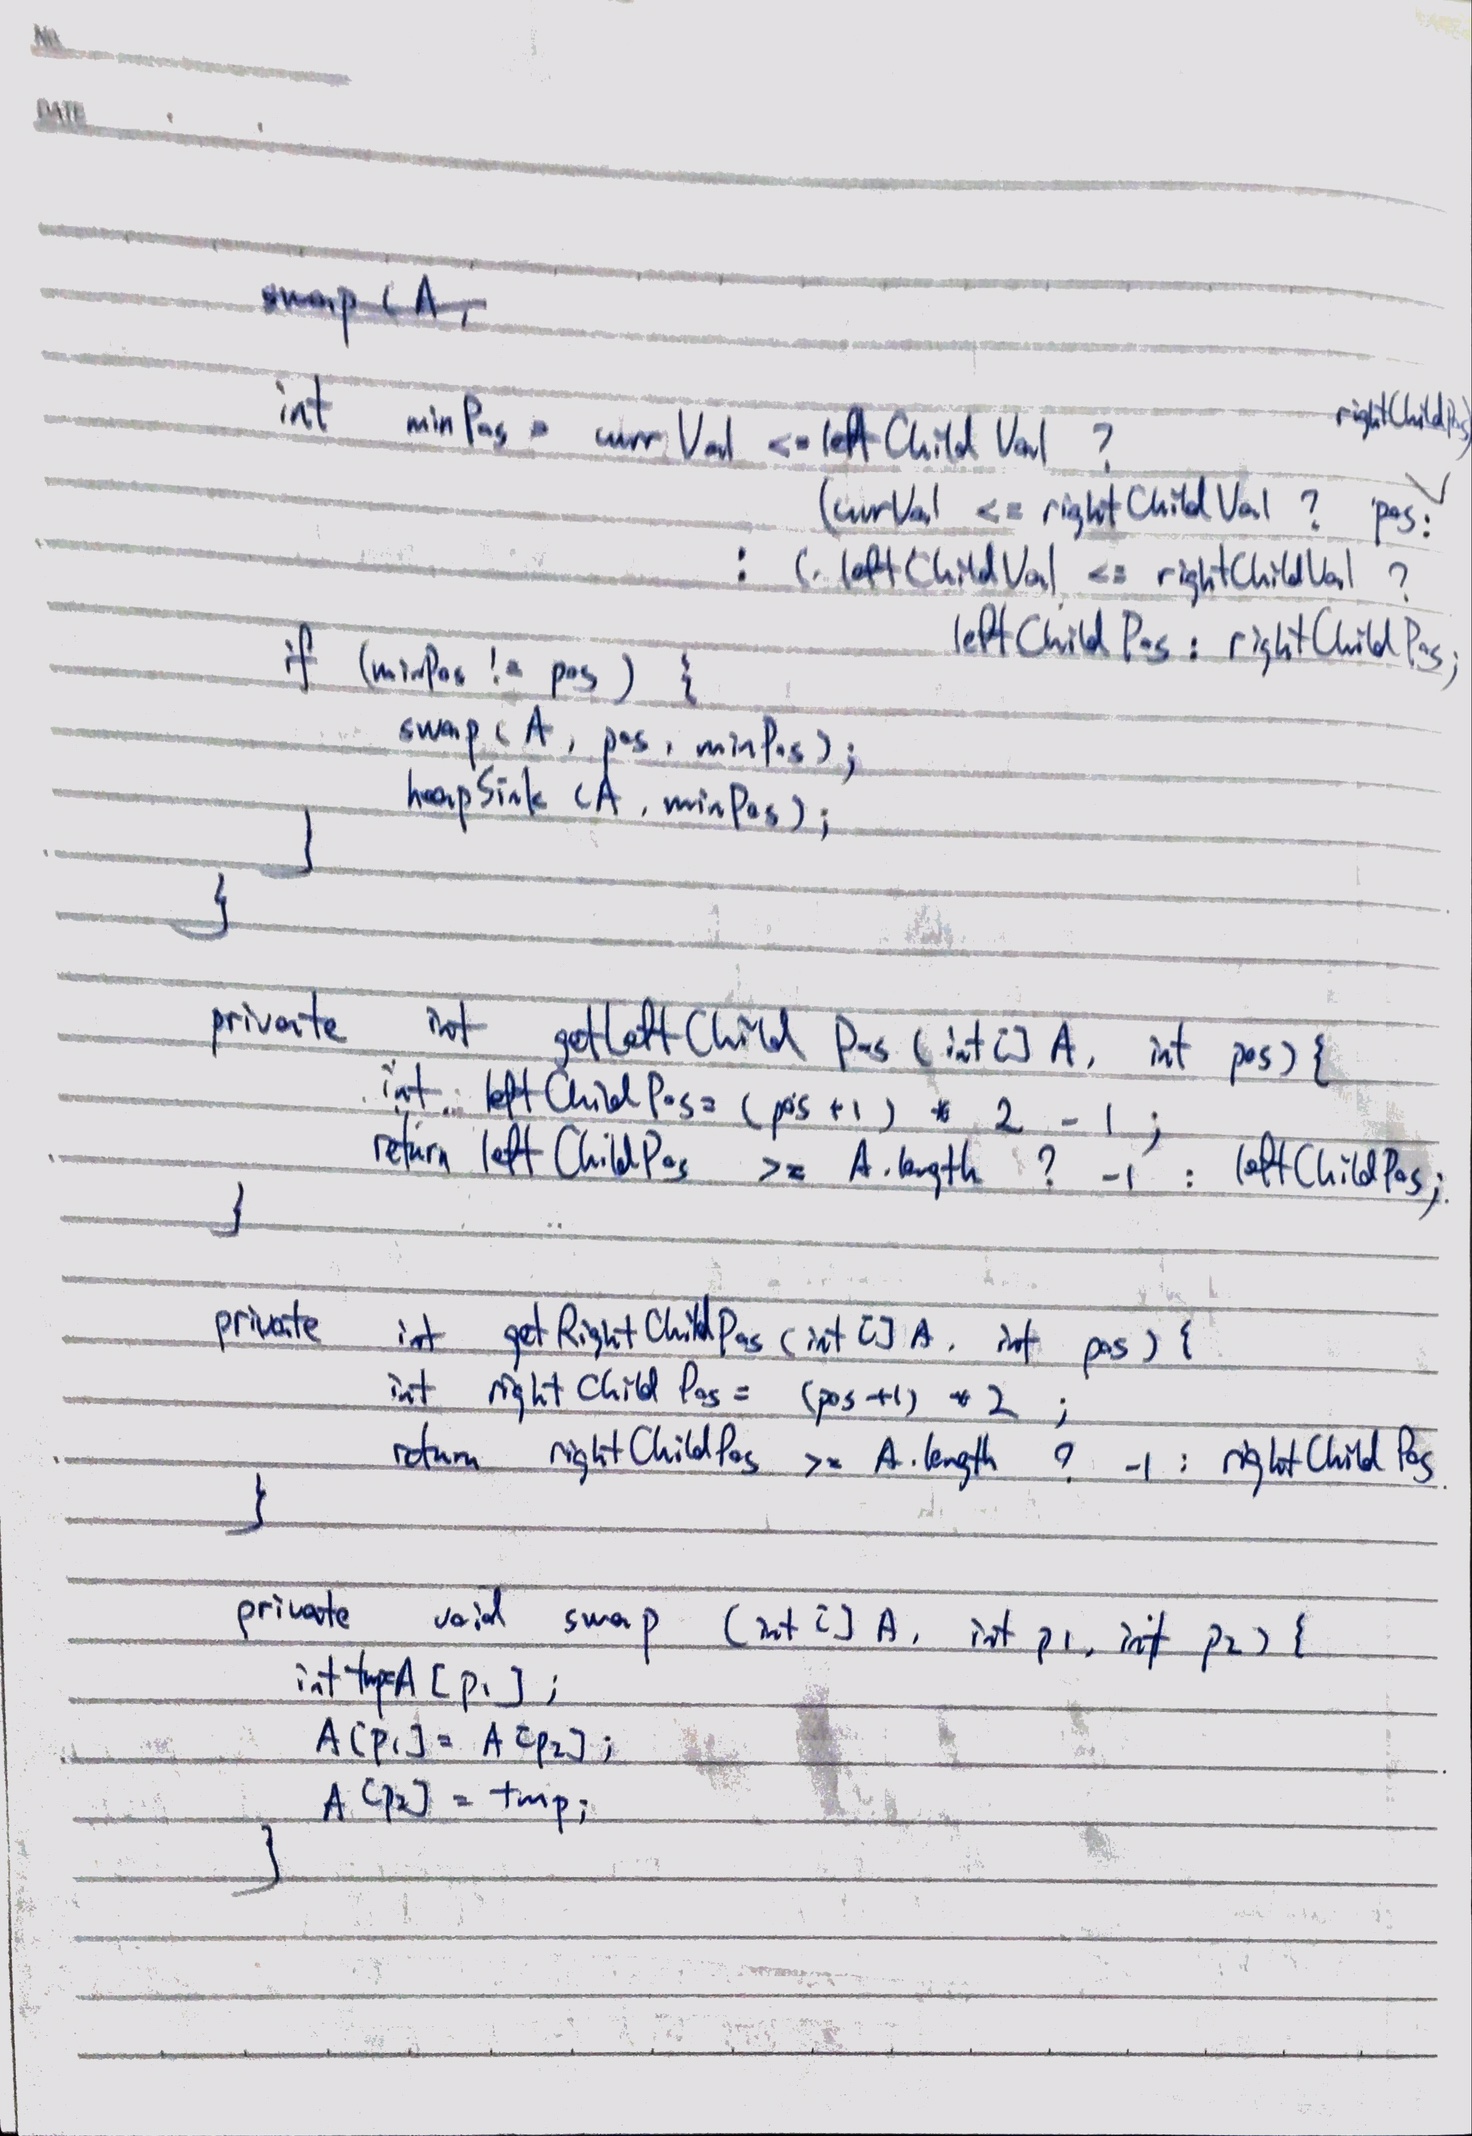 No.
DATE
swap (A,
int minPos = currVal <= leftChildVal ?
rightChildPos)
(currVal <= rightChildVal ? pos:
: (leftChildVal <= rightChildVal ?
leftChildPos : rightChildPos;
if (minPos != pos) {
swap(A, pos, minPos);
heapSink (A, minPos);
}
}
private int getLeftChildPos (int[] A, int pos) {
int leftChildPos = (pos +1) * 2 - 1 ;
return leftChildPos >= A.length ? -1 : leftChildPos;
}
private int getRightChildPos (int [] A, int pos) {
int rightChildPos = (pos +1) * 2 ;
return rightChildPos >= A.length ? -1 : rightChildPos
}
private void swap (int [] A, int p1, int p2) {
int tmp=A [p1] ;
A[p1] = A[p2] ;
A [p2] = tmp;
}